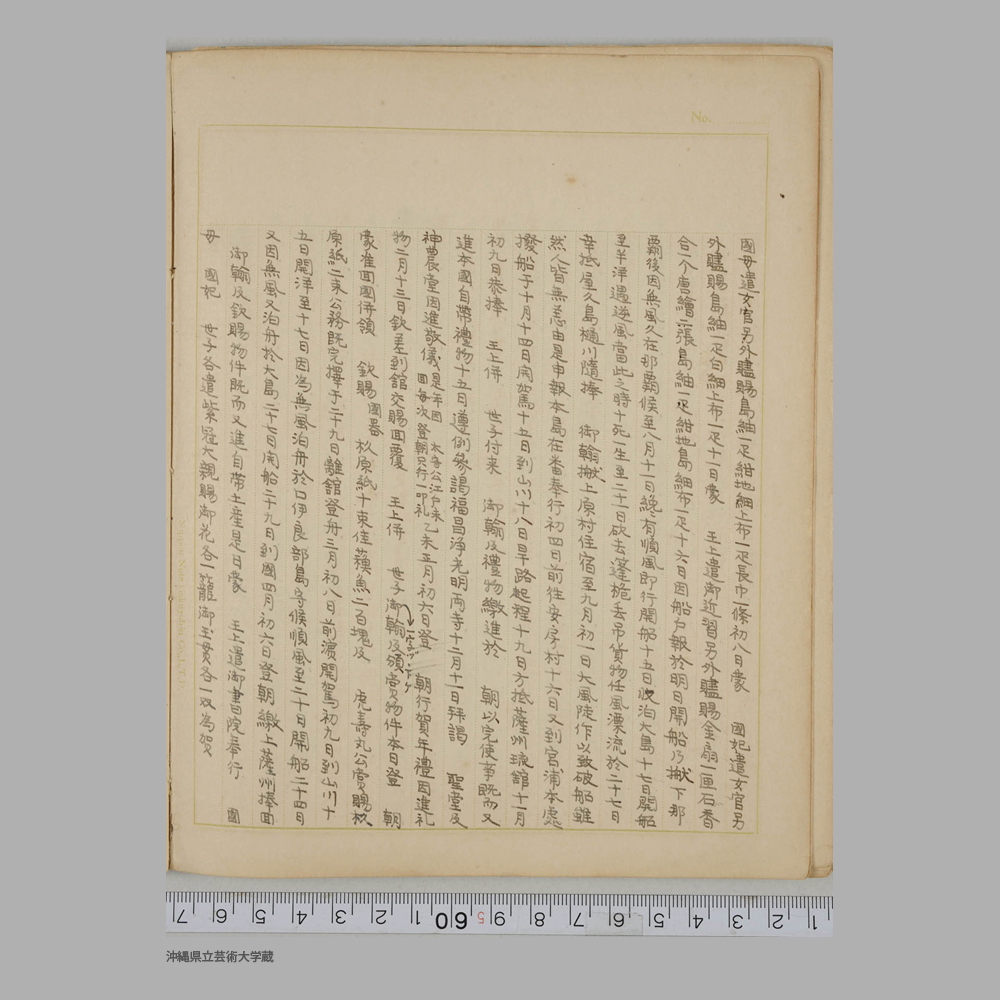 No.
國母遣女官另外贐賜島紬一疋紺地細上布一疋長巾一條初八日蒙 國妃遣女官另
外贐賜島紬一疋白細上布一疋十一日蒙 王上遣御近習另外贐賜金扇一匣石香
合一个唐繪二張島紬一疋紺地島細布一疋十六日因船戶報於明日開船乃搬下那
霸後因無風久在那霸候至八月十一日纔有順風即行開船十五日收泊大島十七日開船
至半洋遇逆風當此之時十死一生至二十一日砍去篷桅丢吊貨物任風漂流於二十七日
幸抵屋久島樋川隨捧 御翰搬上原村住宿至九月初一日大風陡作以致破船雖
然人皆無恙由是申報本島在番奉行初四日前往安房村十六日又到宮浦本處
撥船于十月十四日開駕十五日到山川十八日旱路起程十九日方抵薩州琉館十一月
初九日恭捧 王上併 世子付来 御翰及禮物繳進於 朝以完使事既而又
進本國自帶禮物十五日遵例參謁福昌淨光明両寺十二月十一日拜謁 聖堂及
神農堂因進敬儀是年因 太守公江戸来回每次登朝只行一叩礼乙未正月初六日登 朝行賀年禮因進礼
物二月十三日欽差到館交賜回覆 王上併 世子御翰及頒賞物件本日登 朝
一字ヅヽトケ
蒙准回國併領 欽賜國器 杦原紙十束佳蘓魚二百塊及 虎壽丸公賞賜杦
原紙二束公務既完擇于二十九日離館登舟三月初八日前濱開駕初九日到山川十
五日開洋至十七日因為無風泊舟於口伊良部島守候順風至二十日開船二十四日
又因無風又泊舟於大島二十七日開船二十九日到國四月初六日登朝繳上薩州捧回
御翰及欽賜物件既而又進自帶土産是日蒙 王上遣御書院奉行 國
母 國妃 世子各遣紫冠大親賜御花各一籠御玉貫各一双為賀
7 6 5 4 3 2 1 60 5 9 8 7 6 5 4 3 2 1
沖縄県立芸術大学蔵